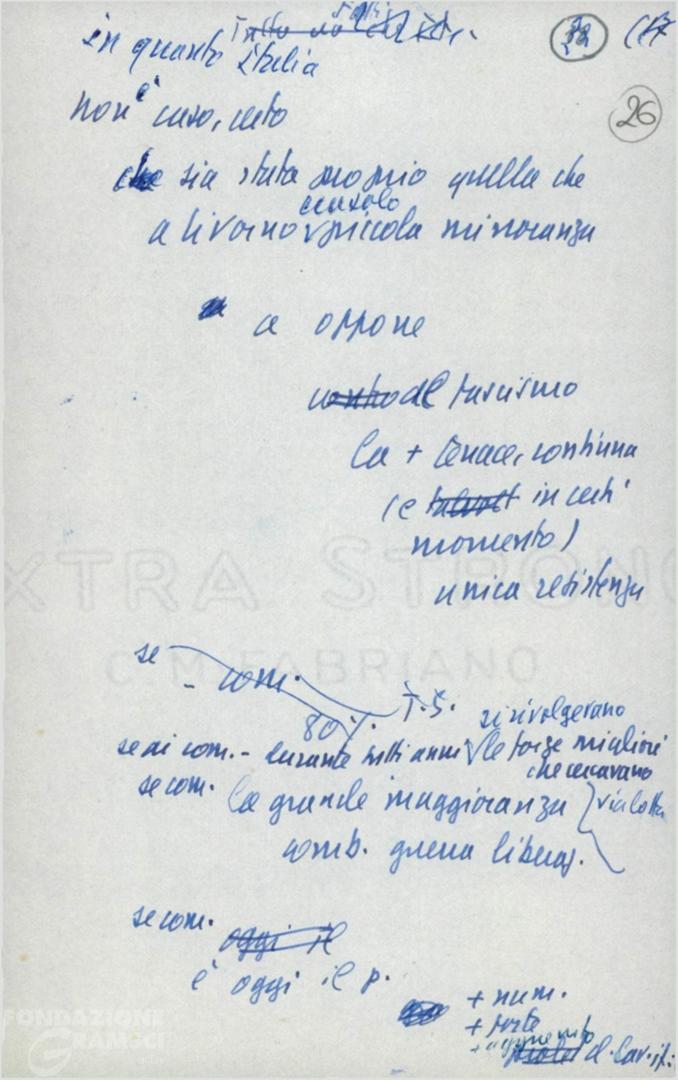 in quanto Italia
26
non è caso, certo
che sia stata proprio quella che
a Livorno era solo piccola minoranza
a opporre
contro al fascismo
la + tenace, continua
(e talvolt in certi
momento)
unica resistenza
EXTRA STRONG
C.M. FABRIANO
se - com. 80% T.S.
se ai com. - durante tutti anni si rivolgevano
le forze migliori
che cercavano
via lotta
se com. la grande maggioranza
comb. guerra liberaz.
se com.
oggi il
è oggi il p.
+ num.
+ forte
d. lav. it.
FONDAZIONE
GRAMSCI